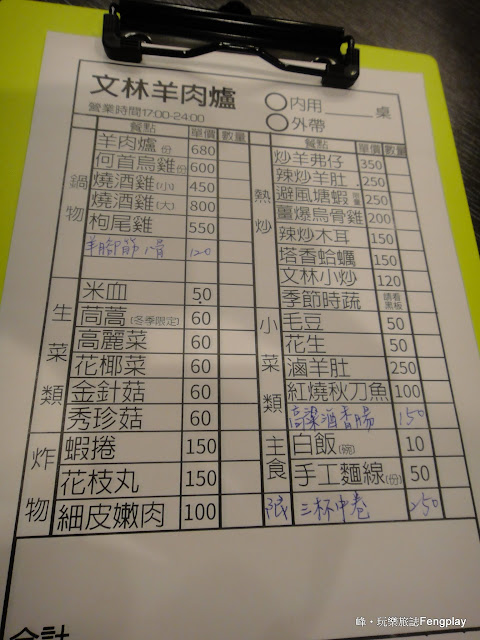 文林羊肉爐
營業時間17:00-24:00
○內用
○外帶
桌
餐點 單價 數量
鍋物
羊肉爐 份 680
何首烏雞 份 600
燒酒雞(小) 450
燒酒雞(大) 800
枸尾雞 550
120
生菜類
米血 50
茼蒿(冬季限定) 60
高麗菜 60
花椰菜 60
金針菇 60
秀珍菇 60
炸物
蝦捲 150
花枝丸 150
細皮嫩肉 100
餐點 單價 數量
熱炒
炒羊弗仔 350
辣炒羊肚 250
避風塘蝦 250
薑爆烏骨雞 200
辣炒木耳 150
塔香蛤蠣 150
文林小炒 120
季節時蔬 請看黑板
小菜類
毛豆 50
花生 50
滷羊肚 250
紅燒秋刀魚 100
高粱酒香腸 150
主食
白飯(碗) 10
手工麵線(份) 50
限 三杯中卷 250
合計
峰・玩樂旅誌Fengplay